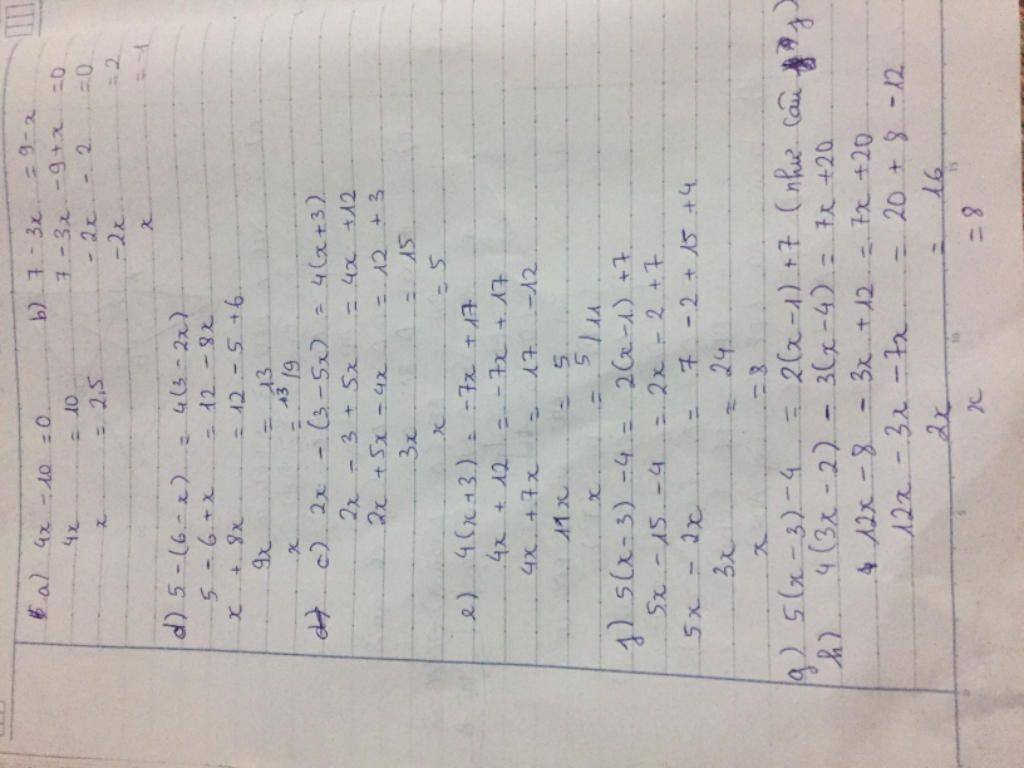 a) 4x - 10 = 0
4x = 10
x = 2,5
b) 7 - 3x = 9 - x
7 - 3x - 9 + x = 0
- 2x - 2 = 0
- 2x = 2
x = -1
d) 5 - (6 - x) = 4(3 - 2x)
5 - 6 + x = 12 - 8x
x + 8x = 12 - 5 + 6
9x = 13
x = 13/9
c) 2x - (3 - 5x) = 4(x + 3)
2x - 3 + 5x = 4x + 12
2x + 5x - 4x = 12 + 3
3x = 15
x = 5
e) 4(x + 3) = -7x + 17
4x + 12 = -7x + 17
4x + 7x = 17 - 12
11x = 5
x = 5/11
f) 5(x - 3) - 4 = 2(x - 1) + 7
5x - 15 - 4 = 2x - 2 + 7
5x - 2x = 7 - 2 + 15 + 4
3x = 24
x = 8
g) 5(x - 3) - 4 = 2(x - 1) + 7 (như câu f)
h) 4(3x - 2) - 3(x - 4) = 7x + 20
12x - 8 - 3x + 12 = 7x + 20
12x - 3x - 7x = 20 + 8 - 12
2x = 16
x = 8